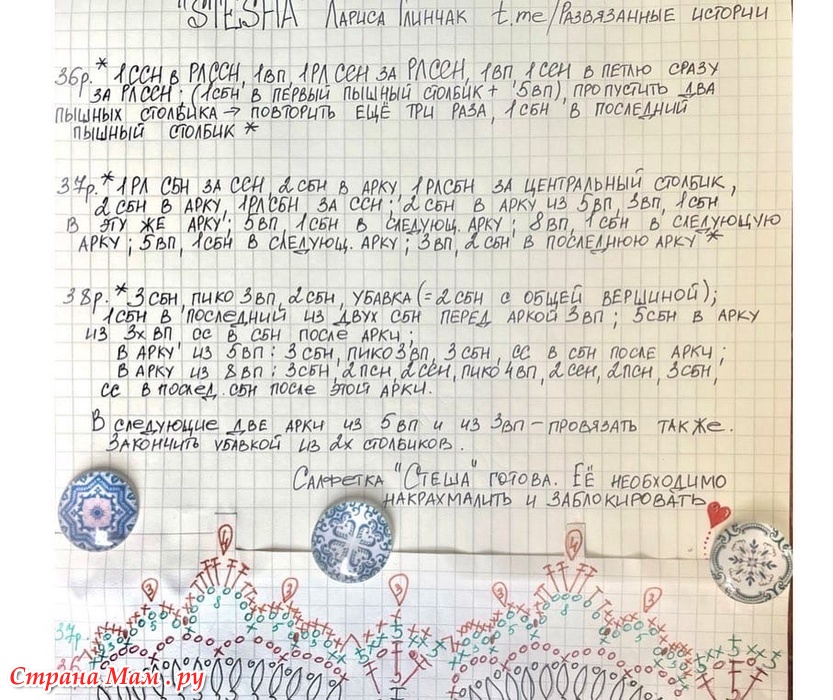 "STESHA Лариса Глинчак t.me/Развязанные истории
36р. * 1ССН в РЛССН, 1ВП, 1РЛ ССН за РЛССН, 1ВП 1ССН в петлю сразу
за РЛССН; (1СБН в первый пышный столбик + 5ВП), пропустить два
пышных столбика → повторить ещё три раза, 1СБН в последний
пышный столбик *
37р. * 1РЛ СБН за ССН, 2СБН в арку, 1РЛСБН за центральный столбик,
2СБН в арку, 1РЛСБН за ССН; 2СБН в арку из 5ВП, 3ВП, 1СБН
в эту же арку; 5ВП, 1СБН в следующ. арку; 8ВП, 1СБН в следующую
арку; 5ВП, 1СБН в следующ. арку; 3ВП, 2СБН в последнюю арку *
38р. * 3СБН, пико 3ВП, 2СБН, убавка (= 2СБН с общей вершиной);
1СБН в последний из двух СБН перед аркой 3ВП; 5СБН в арку
из 3х ВП СС в СБН после арки;
в арку из 5ВП: 3СБН, пико 3ВП, 3СБН, СС в СБН после арки;
в арку из 8ВП: 3СБН, 2ПСН, 2ССН, пико 4ВП, 2ССН, 2ПСН, 3СБН,
СС в послед. СБН после этой арки.
В следующие две арки из 5ВП и из 3ВП – провязать также.
Закончить убавкой из 2х столбиков.
Салфетка "Стеша" готова. Её необходимо
накрахмалить и заблокировать
4 4
3 3 3 3 3
8 8
5 5 5 5
37р.
36
Страна Мам.ру